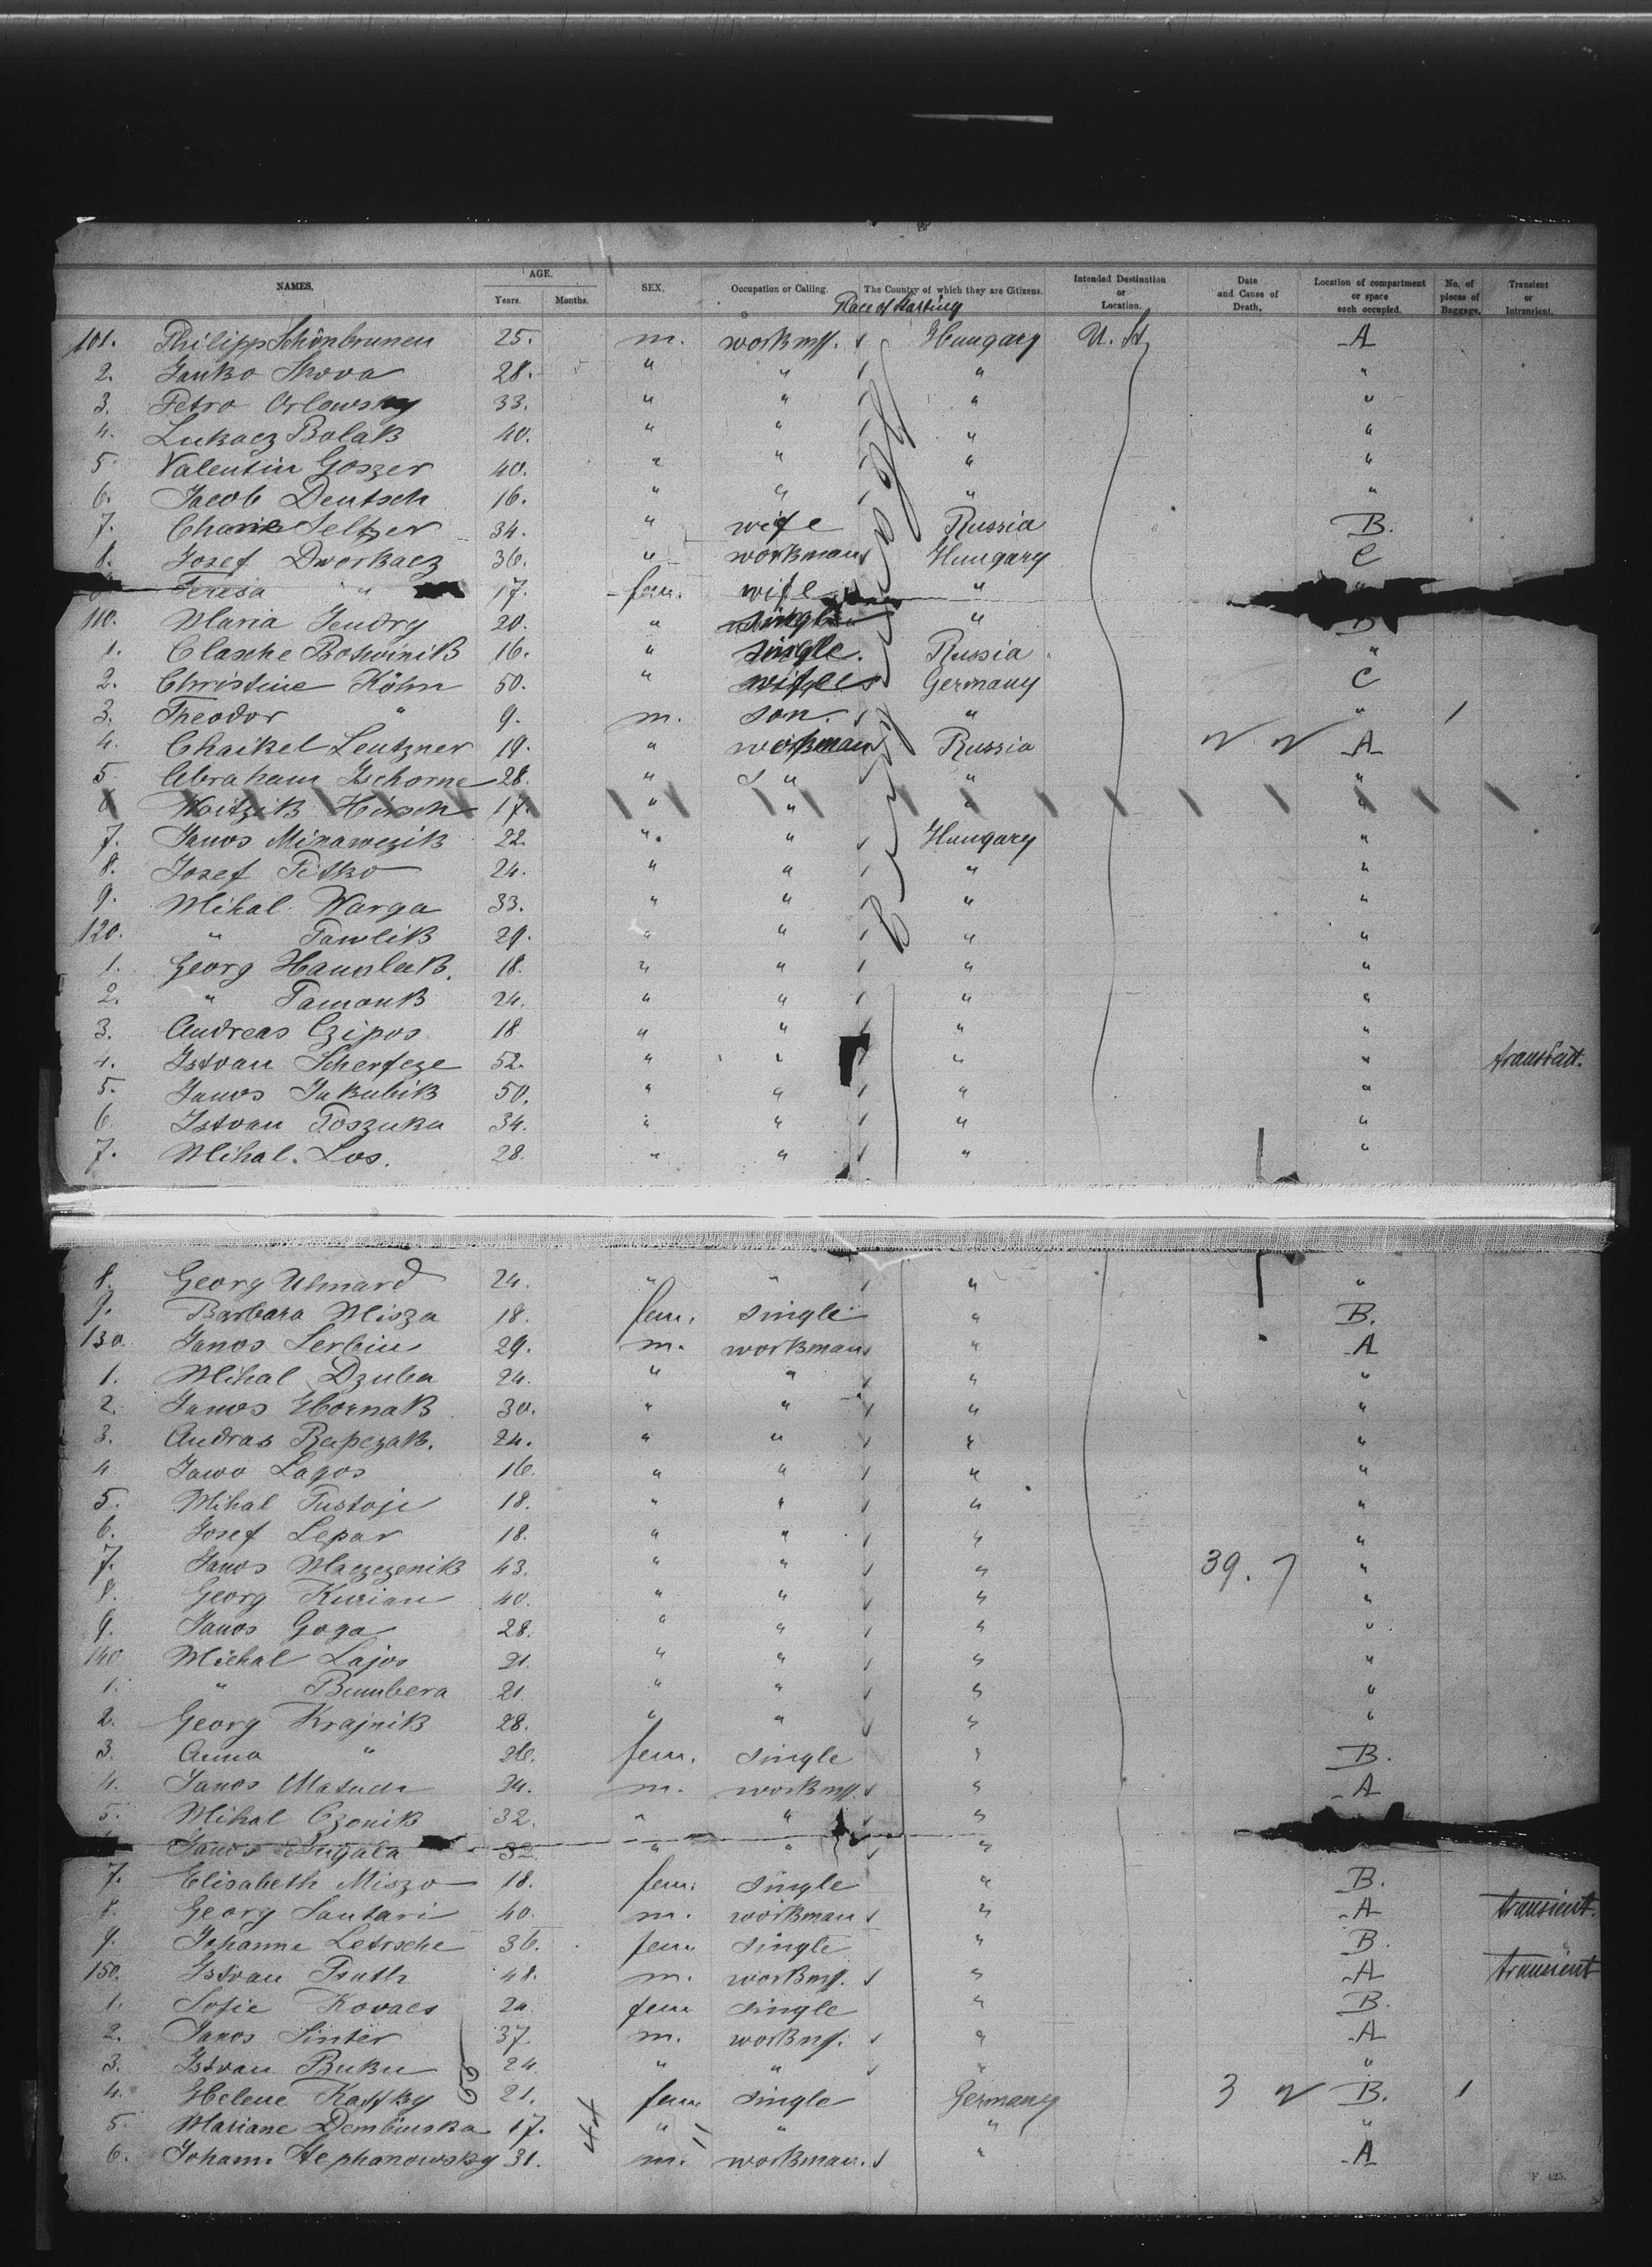 NAMES. AGE. SEX. Occupation or Calling. The Country of which they are Citizens. Intended Destination or Location. Date and Cause of Death. Location of compartment or space each occupied. No. of pieces of Baggage. Transient or Intransient.
Years. Months. Place of Starting
101. Philipp Schönbrunen 25. m. workm. Hungary U. St. A
2. Janko 28. " " " "
3. Petro Orlowsky 33. " " " "
4. Lukacz Bolak 40. " " " "
5. Valentin Goszer 40. " " " "
6. Jacob Deutsch 16. " " " "
7. Seltzer 34. " wife Russia B.
8. Josef Dworkacz 36. " workman Hungary C
Teresa " 17. fem. wife " "
110. Maria Jendry 20. " single " B
1. Clasche Botwinik 16. " single. Russia "
2. Christine Köhn 50. " wife Germany C
3. Theodor " 9. m. son. " " 1
4. Chaikel Leutzner 19. " workman Russia A
5. Abraham 28. " " " "
6. Hirsch 17. " " " "
7. Janos 22. " " Hungary "
8. Josef Petko 24. " " " "
9. Mihal Warga 33. " " " "
120. " Pawlik 29. " " " "
1. Georg 18. " " " "
2. " 24. " " " "
3. Andreas Czipos 18. " " " "
4. Istvan 52. " " " " transient.
5. Janos Jakubik 50. " " " "
6. Istvan 34. " " " "
7. Mihal. Los. 28. " " " "
8. Georg 24. " " " "
9. Barbara Misza 18. fem. single " B.
130. Janos Serbin 29. m. workman " A
1. Mihal Dzuba 24. " " " "
2. Janos Hornak 30. " " " "
3. Andras Rapczak. 24. " " " "
4. Lagos 16. " " " "
5. Mihal 18. " " " "
6. Josef Lepar 18. " " " "
7. Janos 43. " " " 39. 7 "
8. Georg Kurian 40. " " " "
9. Janos Goga 28. " " " "
140 Michal Lajos 21. " " " "
1. " Bumbera 21. " " " "
2. Georg Krajnik 28. " " " "
3. Anna " 26. fem. single " B.
4. Janos 24. m. workm. " A
5. Mihal Czonik 32. " " "
Janos 32. " " "
7. Elisabeth Miszo 18. fem. single " B.
8. Georg Santari 40. m. workman " A transient.
9. Johanne Letrsche 36. fem. single " B.
150. Istvan 48. m. workm. " A transient
1. Sofie Kovacs 20 fem single " B.
2. Janos Sinter 37. m. workm. " A
3. Istvan Buku 24 " " " "
4. Helene 21. fem. single Germany 3 B. 1
5. Mariane Dembinska 17. " " " "
6. Johann Stephanowsky 31. m. workman. " A
F. 425.